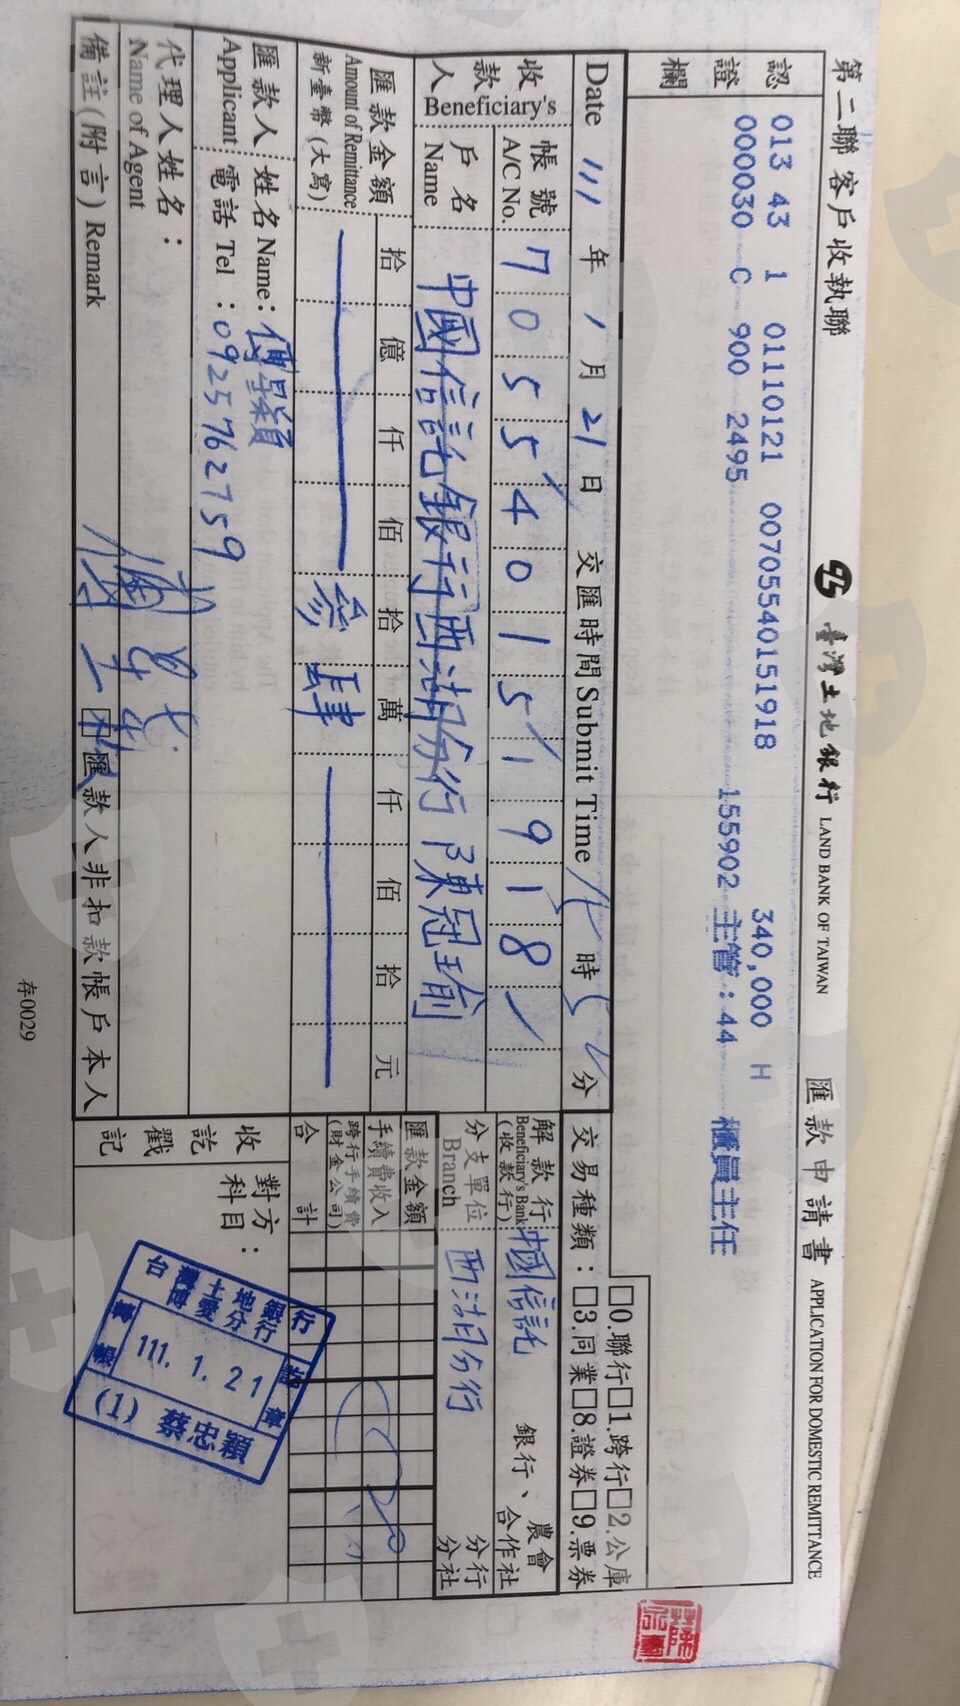 第二聯 客戶收執聯
臺灣土地銀行 LAND BANK OF TAIWAN
匯款申請書 APPLICATION FOR DOMESTIC REMITTANCE
認證欄
013 43 1 01110121 007055401518 340,000 H
000030 C 900 2495 155902 主管:44 櫃員主任
Date 111 年 1 月 21 日 交匯時間 Submit Time 時 分
交易種類:□0.聯行□1.跨行□2.公庫
□3.同業□8.證券□9.票券
收款人 Beneficiary's
帳號 A/C No. 705540151918
戶名 Name 中國信託銀行西湖分行 陳冠瑜
解款行 Beneficiary's Bank (收款行) 中國信託 銀行、農會 合作社
分支單位 Branch 西湖分行 分行 分社
匯款金額 Amount of Remittance 新臺幣(大寫)
拾 億 仟 佰 拾 萬 仟 佰 拾 元
參 肆
匯款金額
手續費收入
跨行手續費 (財金公司)
合計
匯款人 Applicant
姓名 Name:
電話 Tel:0925762759
代理人姓名:
Name of Agent
備註(附言) Remark
匯款人非扣款帳戶本人
收訖戳記
對方科目:
台灣土地銀行
博愛分行
轉帳
111. 1. 21
訖章
(1) 蔡忠穎
存0029